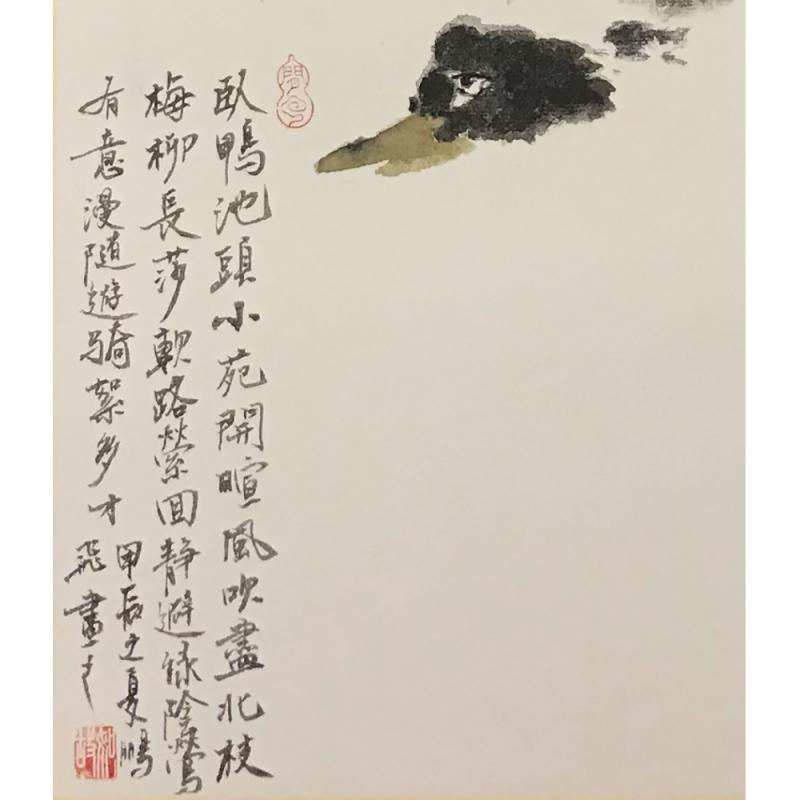 臥鴨池頭小苑開暄風吹盡北枝
梅柳長莎軟路縈回静避綠陰鶯
有意漫隨遊騎絮多才
甲辰之夏鵬
飛畫之